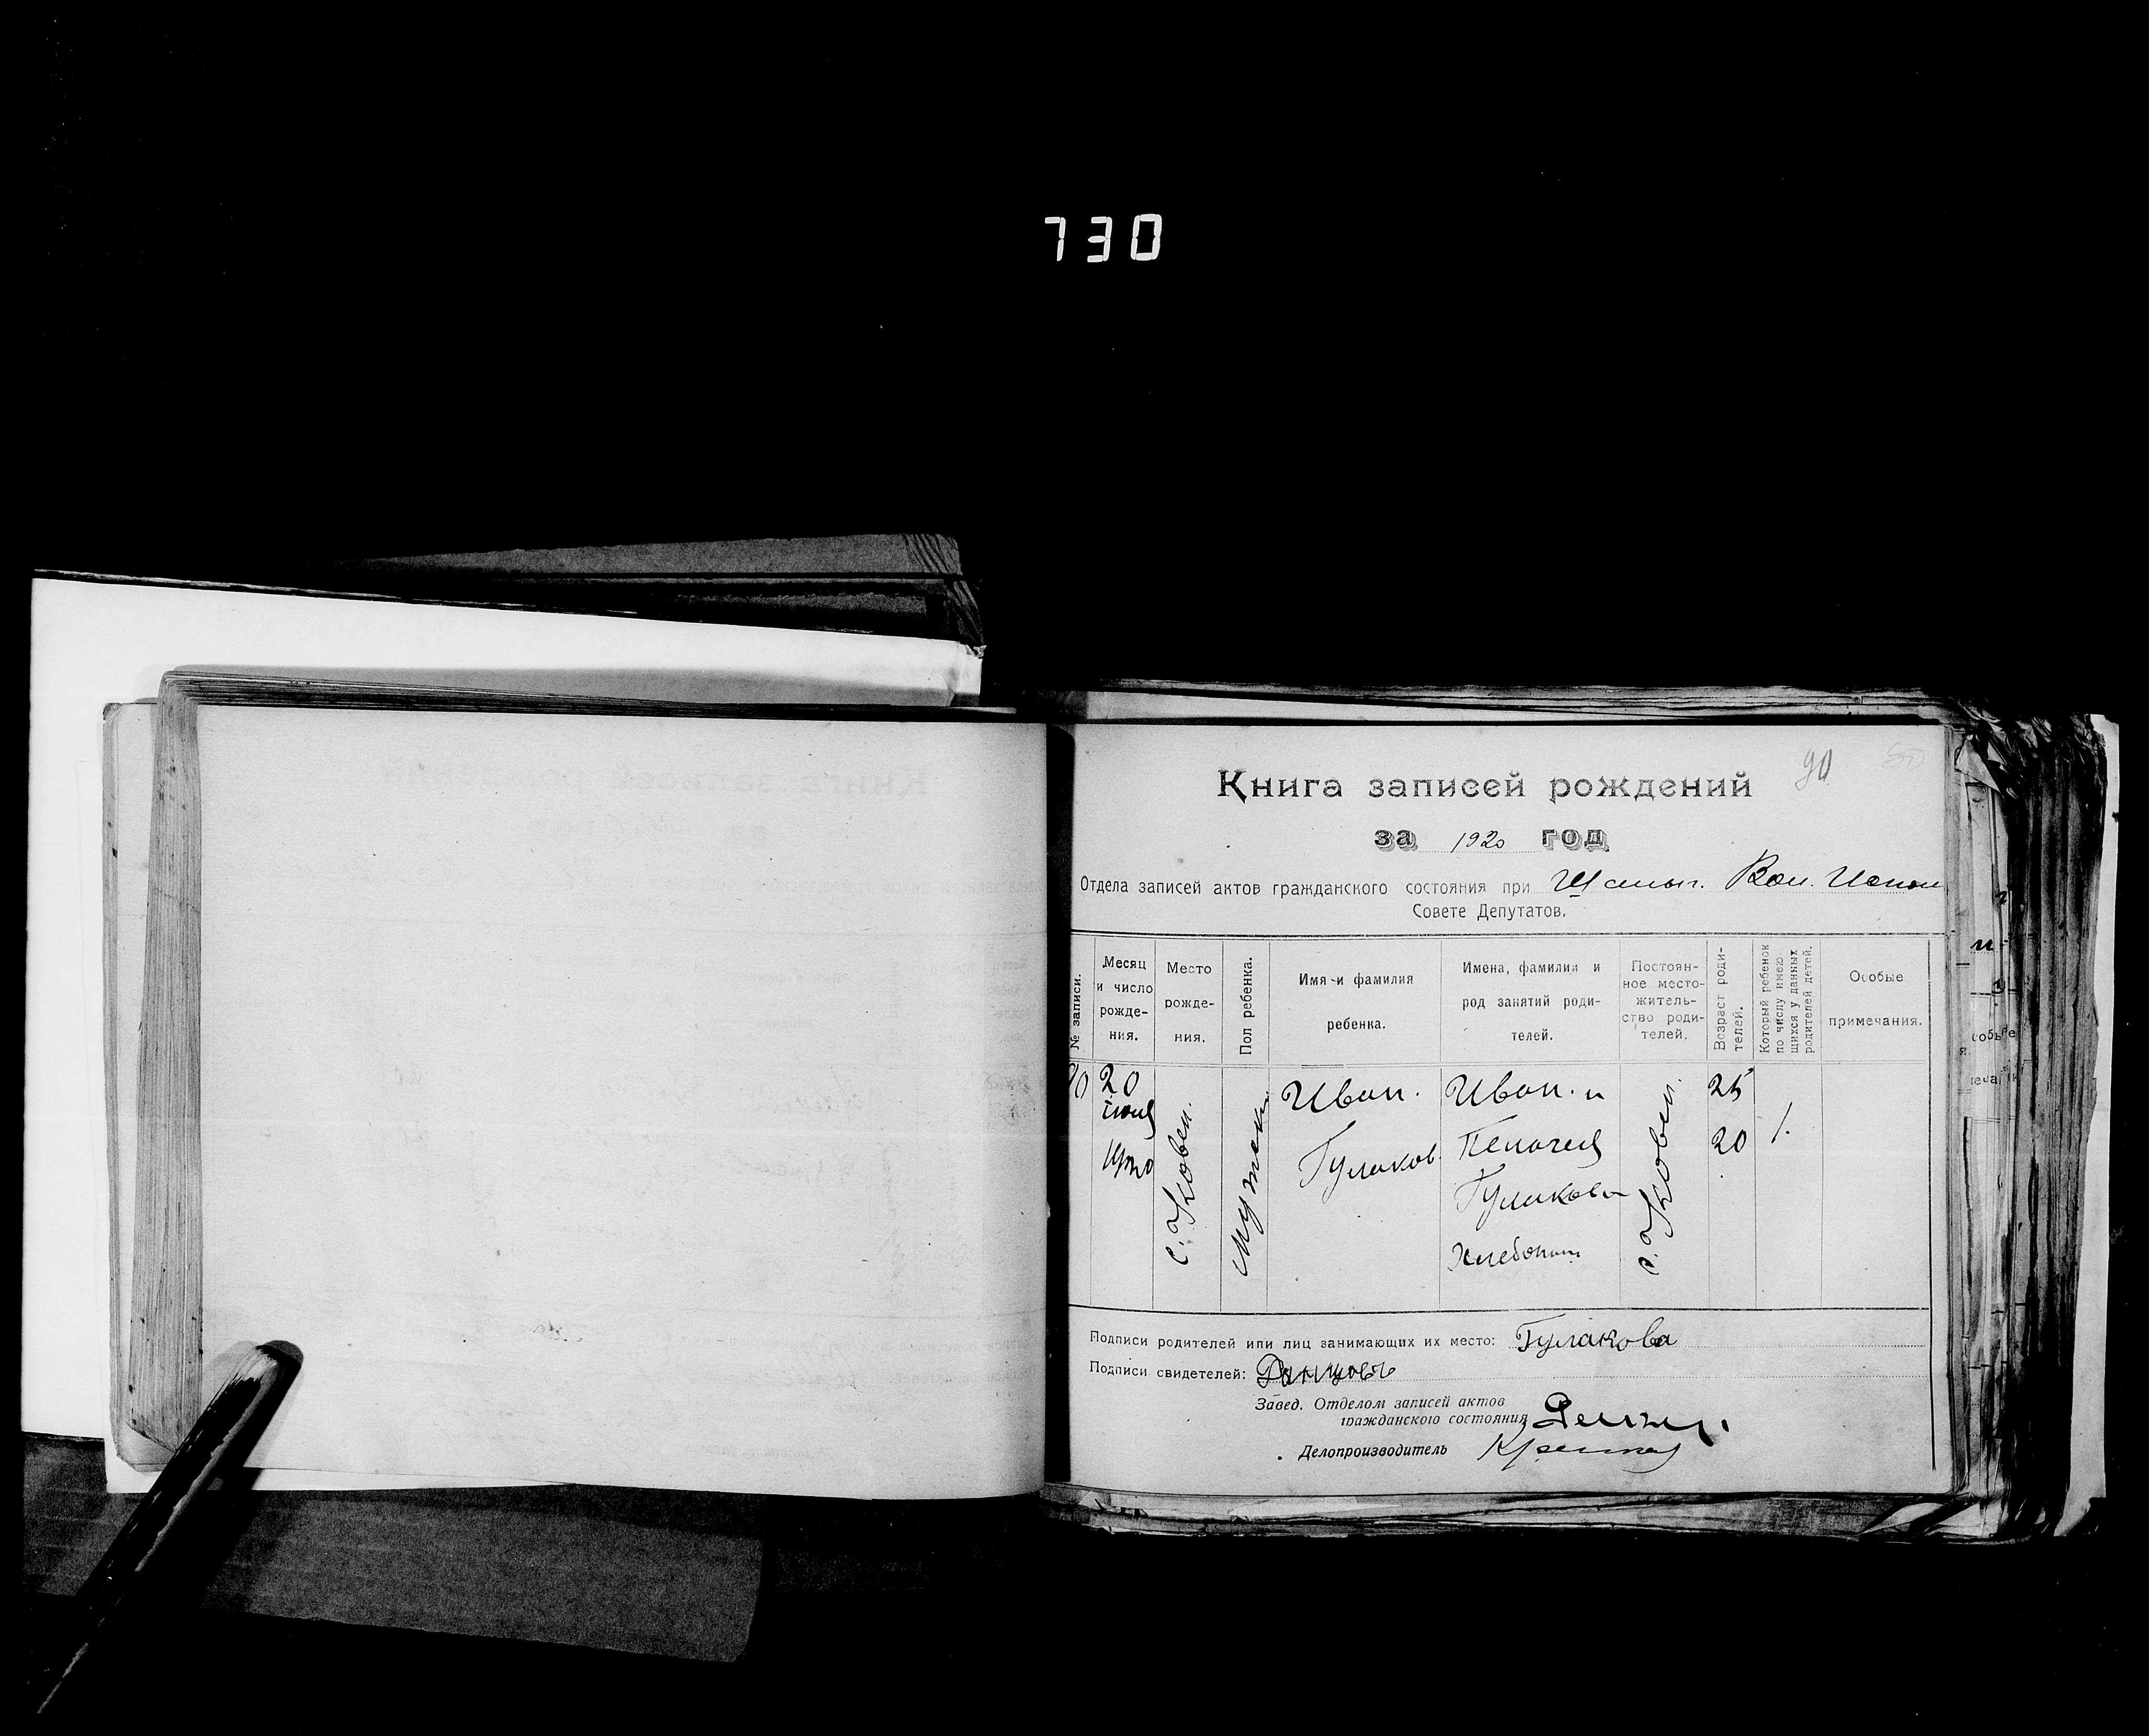 730
90
Книга записей рождений
за 1920 год
Отдела записей актов гражданского состояния при Вол. Исполк
Совете Депутатов.
№ записи.
Месяц и число рожде- ния.
Место рожде- ния.
Пол ребенка.
Имя и фамилия ребенка.
Имена, фамилии и род занятий роди- телей.
Постоян- ное место- житель- ство роди- телей.
Возраст роди- телей.
Который ребенок по числу имею- щихся у данных родителей детей.
Особые примечания.
90
20
июня
1920
Мужск.
Иван.
Гулаков.
Иван. и
Пелагея
Гулаковы
Хлебопаш
25
20
1.
Подписи родителей или лиц занимающих их место: Гулакова
Подписи свидетелей:
Завед. Отделом записей актов
гражданского состояния
Делопроизводитель